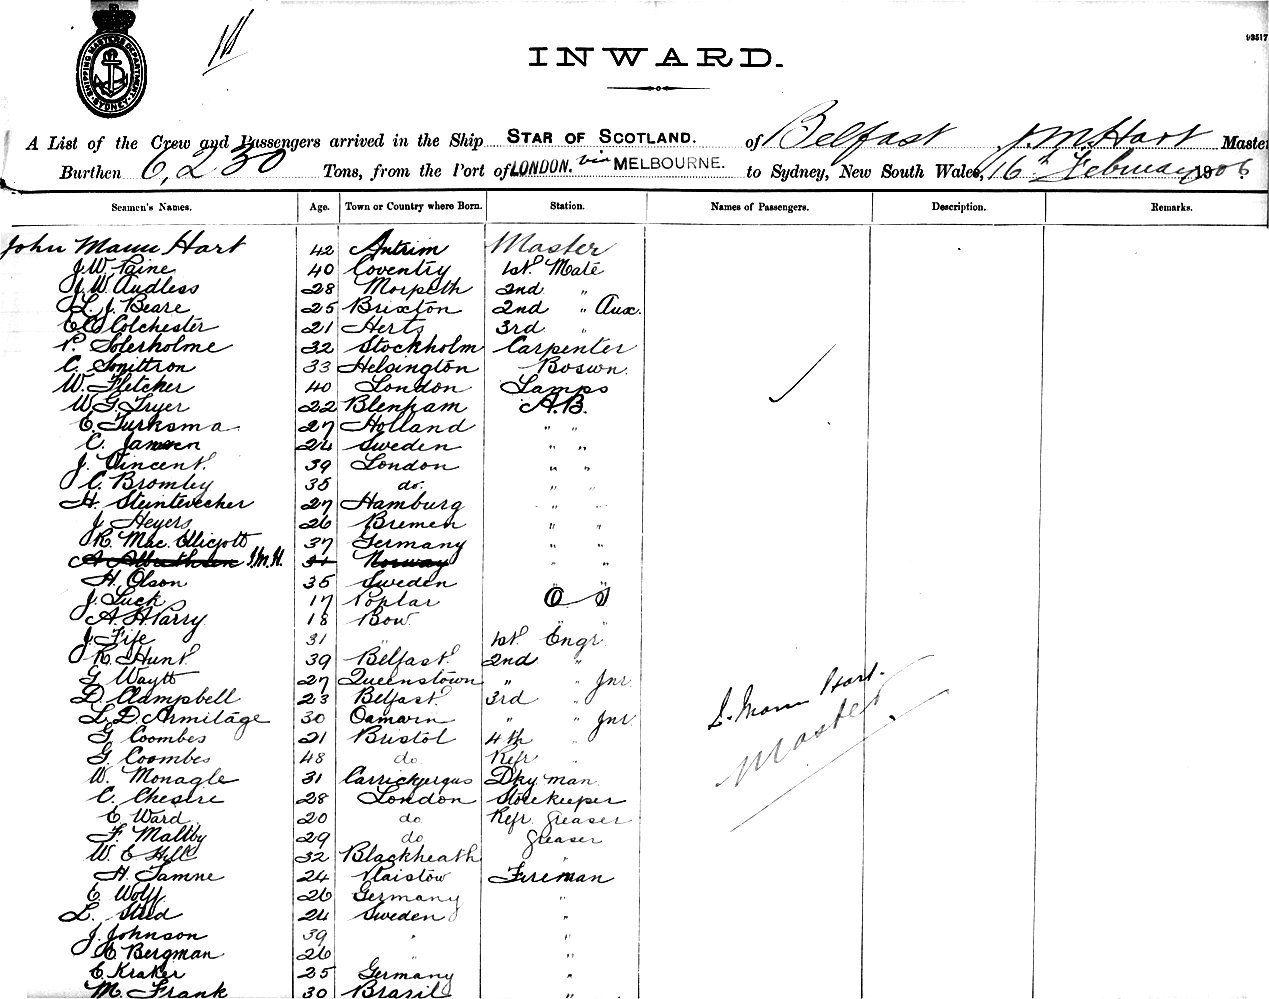 SHIPPING MASTERS DEPARTMENT. SYDNEY.
93517
INWARD.
A List of the Crew and Passengers arrived in the Ship STAR OF SCOTLAND. of Belfast J. M. Hart Master
Burthen 6,230 Tons, from the Port of LONDON. via MELBOURNE. to Sydney, New South Wales, 16th February 1906.
Seamen's Names. Age. Town or Country where Born. Station. Names of Passengers. Description. Remarks.
John Mann Hart 42 Antrim Master
J. W. Paine 40 Coventry 1st. Mate
J. W. Audless 28 Morpeth 2nd "
L. J. Beare 25 Brixton 2nd " Aux.
Colchester 21 Herts 3rd "
P. Soterholme 32 Stockholm Carpenter
C. 33 Helsington Boswn.
W. Fletcher 40 London Lamps
W. G. Fryer 22 Blenham A.B.
E. Turksma 27 Holland " "
C. Jansen 24 Sweden " "
J. Vincent 39 London " "
C. Bromley 35 do. " "
H. 27 Hamburg " "
J. Heyers 26 Bremen " "
R. Mac Ellicott 37 Germany " "
J.M.H. Norway " "
H. Olson 35 Sweden " "
J. Luck 17 Poplar O S
A. H. Parry 18 Bow " "
J. Fife 31 " 1st. Engr.
R. Hunt 39 Belfast 2nd "
G. Wayth 27 Queenstown " " Jnr
D. Campbell 23 Belfast 3rd "
L. D. Armitage 30 Oamaru " " Jnr
G. Coombes 21 Bristol 4th "
G. Coombes 48 do Refr "
W. Monagle 31 Carrickfergus Dky man
C. Chesire 28 London Storekeeper
E. Ward 20 do Refr. Greaser
F. Maltby 29 do Greaser
W. E. Hill 32 Blackheath "
H. Tamne 24 Plaistow Fireman
E. Wolff 26 Germany "
L. Stud 24 Sweden "
J. Johnson 39 " "
E. Bergman 26 " "
E. Kraker 25 Germany "
M. Frank 30 Brasil "
J. Mann Hart.
Master